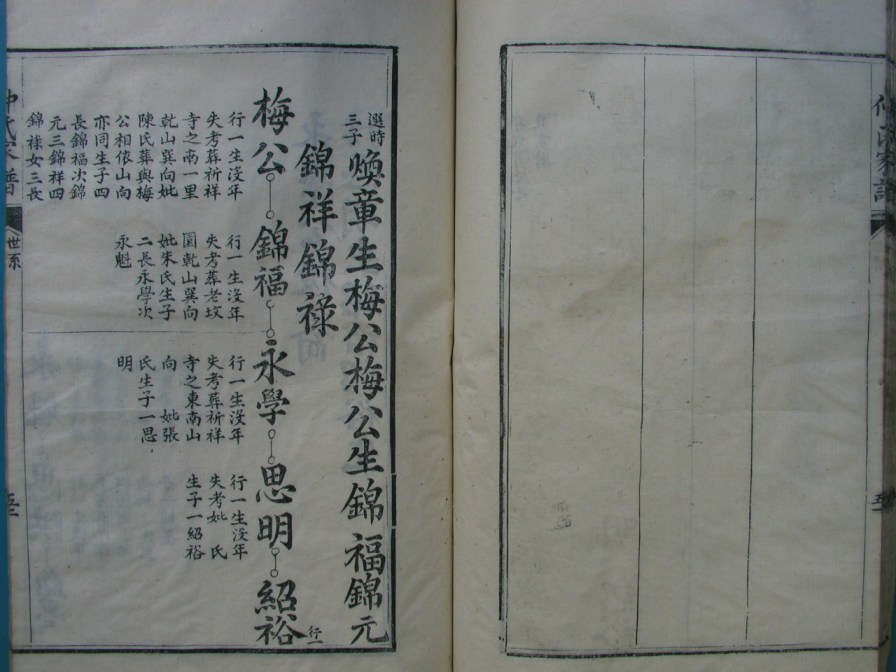 選時
三子
煥章生梅公梅公生錦福錦元
錦祥錦祿
梅公
錦福
永學
思明
紹裕
行一
行一生沒年
失考葬祈祥
寺之南一里
乾山巽向妣
陳氏葬與梅
公相依山向
亦同生子四
長錦福次錦
元三錦祥四
錦祿女三長
行一生沒年
失考葬老坟
園乾山巽向
妣朱氏生子
二長永學次
永魁
行一生沒年
失考葬祈祥
寺之東南山
向 妣張
氏生子一思
明
行一生沒年
失考妣 氏
生子一紹裕
氏家譜
世系